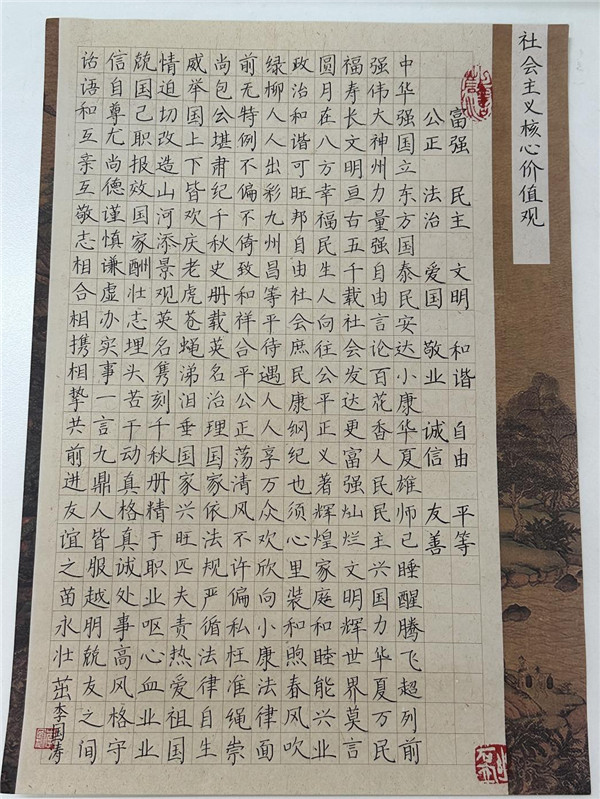 社会主义核心价值观
富强 民主 文明 和谐 自由 平等
公正 法治 爱国 敬业 诚信 友善
中华强国立东方国泰民安达小康华夏雄师已睡醒腾飞超列前
强伟大神州力量强自由言论百花香人民民主兴国力华夏万民
福寿长文明亘古五千载社会发达更富强灿烂文明辉世界莫言
圆月在八方幸福民生人向往公平正义著辉煌家庭和睦能兴业
政治和谐可旺邦自由社会庶民康纲纪也须心里装和煦春风吹
绿柳人人出彩九州昌等平待遇人人享万众欢欣向小康法律面
前无特例不偏不倚致和祥合平公正荡清风不许偏私枉准绳崇
尚包公堪肃纪千秋史册载英名治理国家依法规严循法律自生
威举国上下皆欢庆老虎苍蝇涕泪垂国家兴旺匹夫责热爱祖国
情迫切改造山河添景观英名隽刻千秋册精于职业呕心血业业
兢国己职报效国家酬壮志埋头苦干动真格真诚处事高风格守
信自尊尤尚德谨慎谦虚办实事一言九鼎人皆服越朋兢友之间
话语和互亲互敬志相合相携相挚共前进友谊之苗永壮茁 李国涛